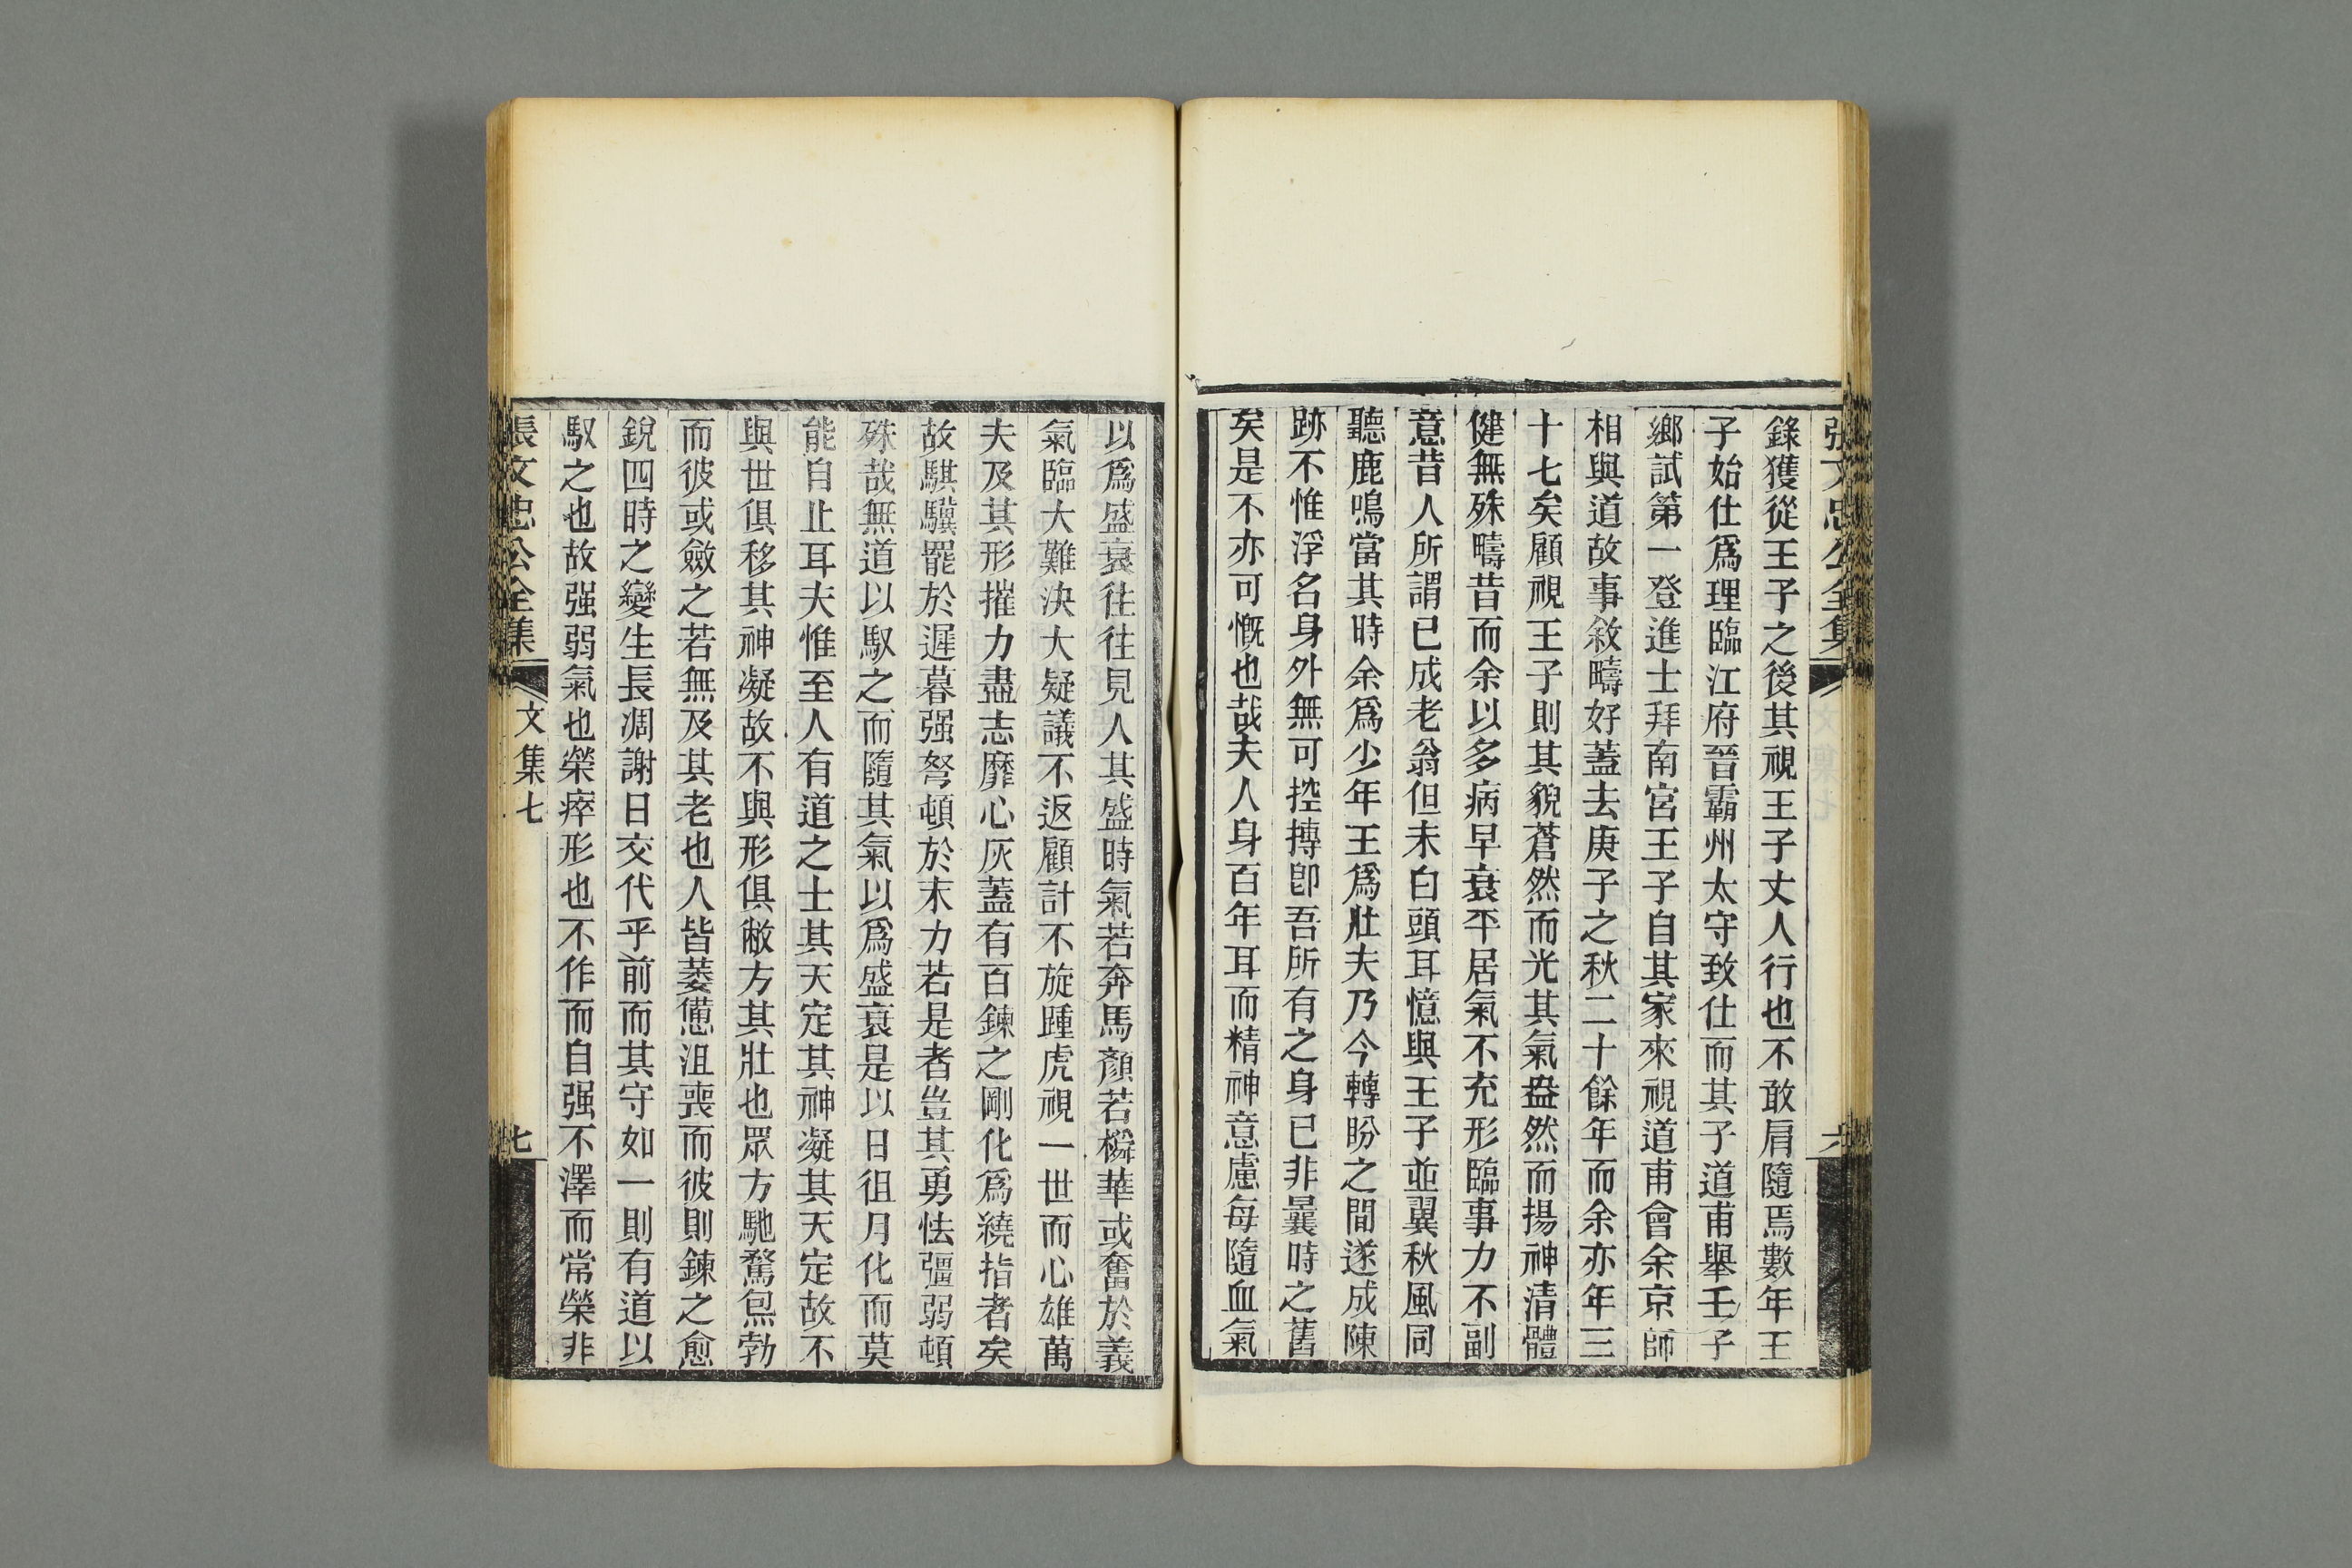 張文忠公全集
六
錄獲從王子之後其視王子丈人行也不敢肩隨焉數年王
子始仕爲理臨江府晉霸州太守致仕而其子道甫舉壬子
鄉試第一登進士拜南宮王子自其家來視道甫會余京師
相與道故事敘疇好蓋去庚子之秋二十餘年而余亦年三
十七矣顧視王子則其貌蒼然而光其氣盎然而揚神清體
健無殊疇昔而余以多病早衰平居氣不充形臨事力不副
意昔人所謂已成老翁但未白頭耳憶與王子並翼秋風同
聽鹿鳴當其時余爲少年王爲壯夫乃今轉盼之間遂成陳
跡不惟浮名身外無可控摶卽吾所有之身已非曩時之舊
矣是不亦可慨也哉夫人身百年耳而精神意慮每隨血氣
以爲盛衰往往見人其盛時氣若奔馬顏若橓華或奮於義
氣臨大難決大疑議不返顧計不旋踵虎視一世而心雄萬
夫及其形摧力盡志靡心灰蓋有百鍊之剛化爲繞指者矣
故騏驥罷於遲暮强弩頓於末力若是者豈其勇怯彊弱頓
殊哉無道以馭之而隨其氣以爲盛衰是以日徂月化而莫
能自止耳夫惟至人有道之士其天定其神凝其天定故不
與世俱移其神凝故不與形俱敝方其壯也眾方馳騖炰勃
而彼或斂之若無及其老也人皆萎憊沮喪而彼則鍊之愈
銳四時之變生長凋謝日交代乎前而其守如一則有道以
馭之也故强弱氣也榮瘁形也不作而自强不澤而常榮非
張文忠公全集
文集七
七